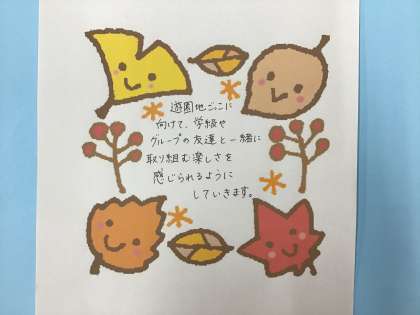 遊園地ごっこに
向けて、学級や
グループの友達と一緒に
取り組む楽しさを
感じられるように
していきます。